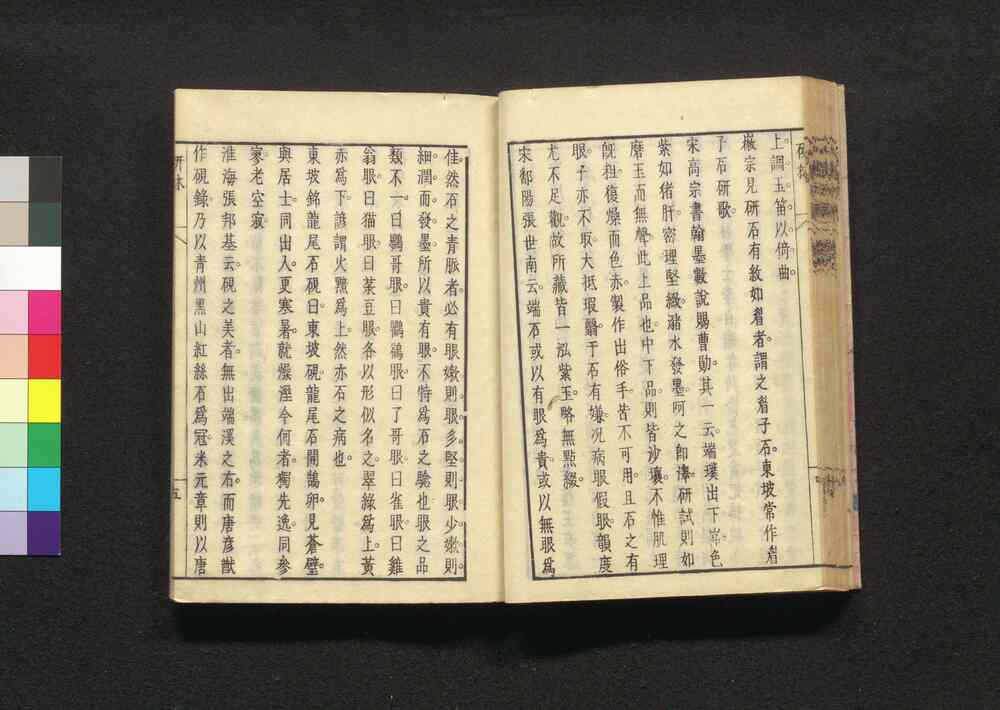 上調玉笛以倚曲
徽宗見研石有紋如眉者謂之眉子石東坡常作眉
子石研歌
宋高宗書翰墨數說賜曹勛其一云端璞出下巖色
紫如猪肝密理堅緻瀦水發墨呵之即澤研試則如
磨玉而無聲此上品也中下品則皆沙壤不惟肌理
旣粗復燥而色赤製作出俗手苦不可用且石之有
眼予亦不取大抵瑕翳于石有嫌況病眼假眼韻度
尤不足觀故所藏皆一泓紫玉略無點綴
宋鄱陽張世南云端石或以有眼爲貴或以無眼爲
佳然石之青脈者必有眼嫩則眼多堅則眼少嫩則
細潤而發墨所以貴有眼不特爲石之驗也眼之品
類不一曰鸚哥眼曰鸜鵒眼曰了哥眼曰雀眼曰雞
翁眼曰猫眼曰菉豆眼各以形似名之翠綠爲上黃
赤爲下諺謂火黯爲上然亦石之病也
東坡銘龍尾石硯曰東坡硯龍尾石開鵠卵見蒼璧
與居士同出入更寒暑就燥溼今何者獨先逸同參
寥老空寂
淮海張邦基云硯之美者無出端溪之右而唐彥猷
作硯錄乃以青州黑山紅絲石爲冠米元章則以唐
研林
五